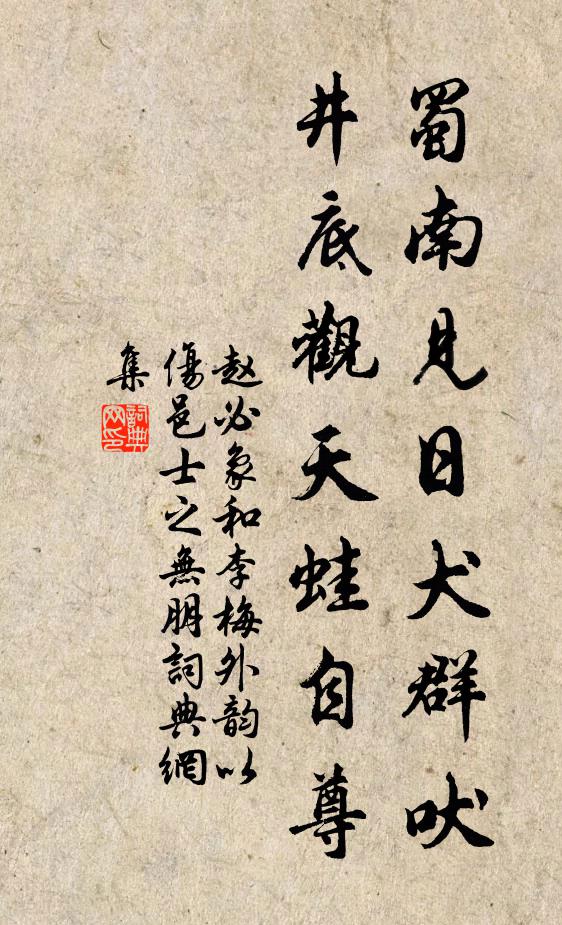 蜀南見日犬群吠
井底觀天蛙自尊
赵必象和李梅外韵以
傷邑士之無朋詞典網
集
詞典
网印